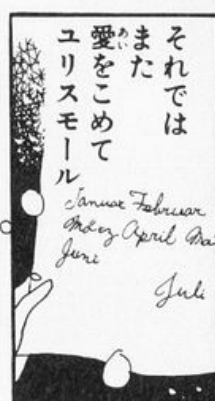 それでは
また
愛をこめて
ユリスモール
Januar Februar
März April Mai
Juni
Juli